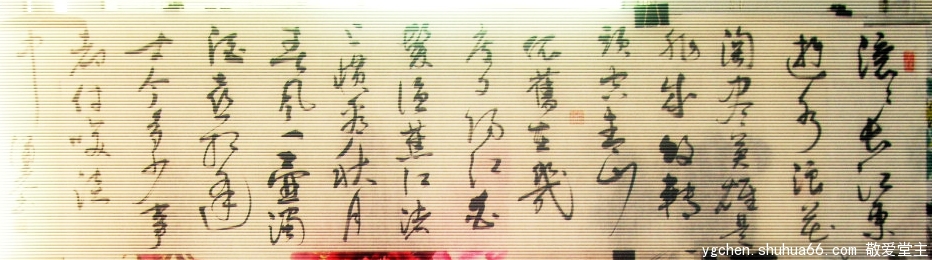 滚〻长江东
逝水浪花
淘尽英雄是
非成败轉
頭空青山
依舊在幾
度夕阳江白
髮渔樵江渚
上惯看秋月
春风一壶濁
酒喜相逢
古今多少事
都付笑谈
中
ygchen.shuhua66.com 敬爱堂主